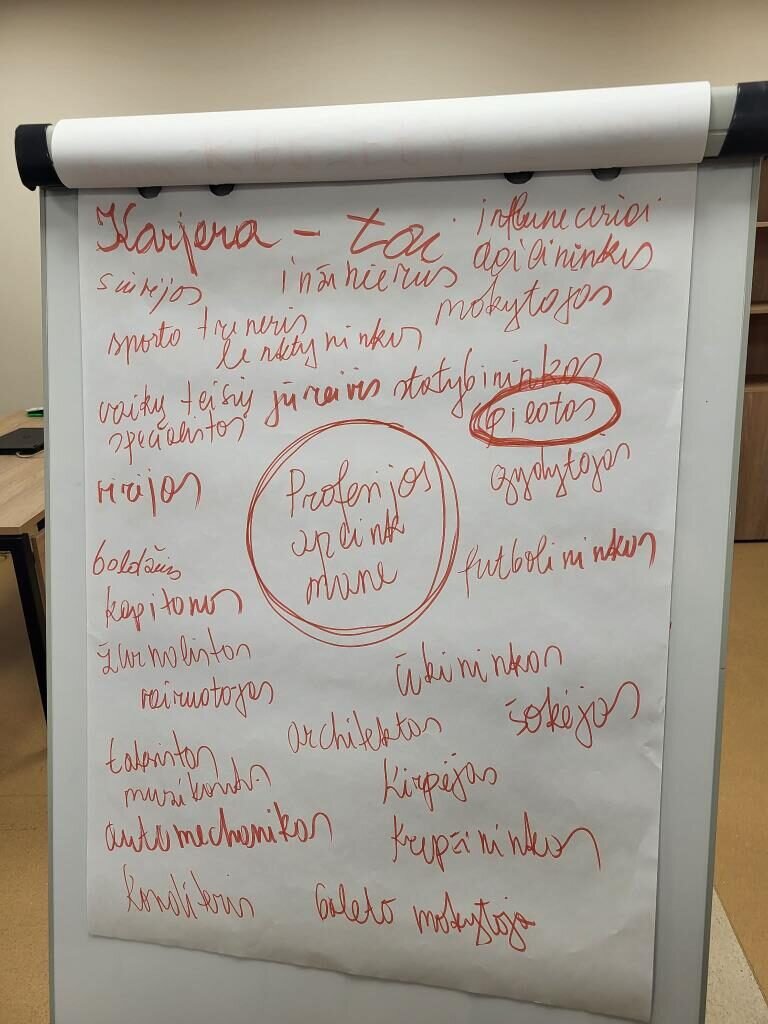 Karjera – tai
inžinierius
mokytojas
sporto treneris
lenktyninkas
vaikų teisių
specialistas
jūreivis
statybininkas
pilotas
gydytojas
virėjas
Profesijos
aplink
mane
futbolininkas
baldžius
kapitonas
žurnalistas
vairuotojas
ūkininkas
šokėjas
architektas
muzikantas
kirpėjas
automechanikas
krepšininkas
konditeris
baleto mokytoja